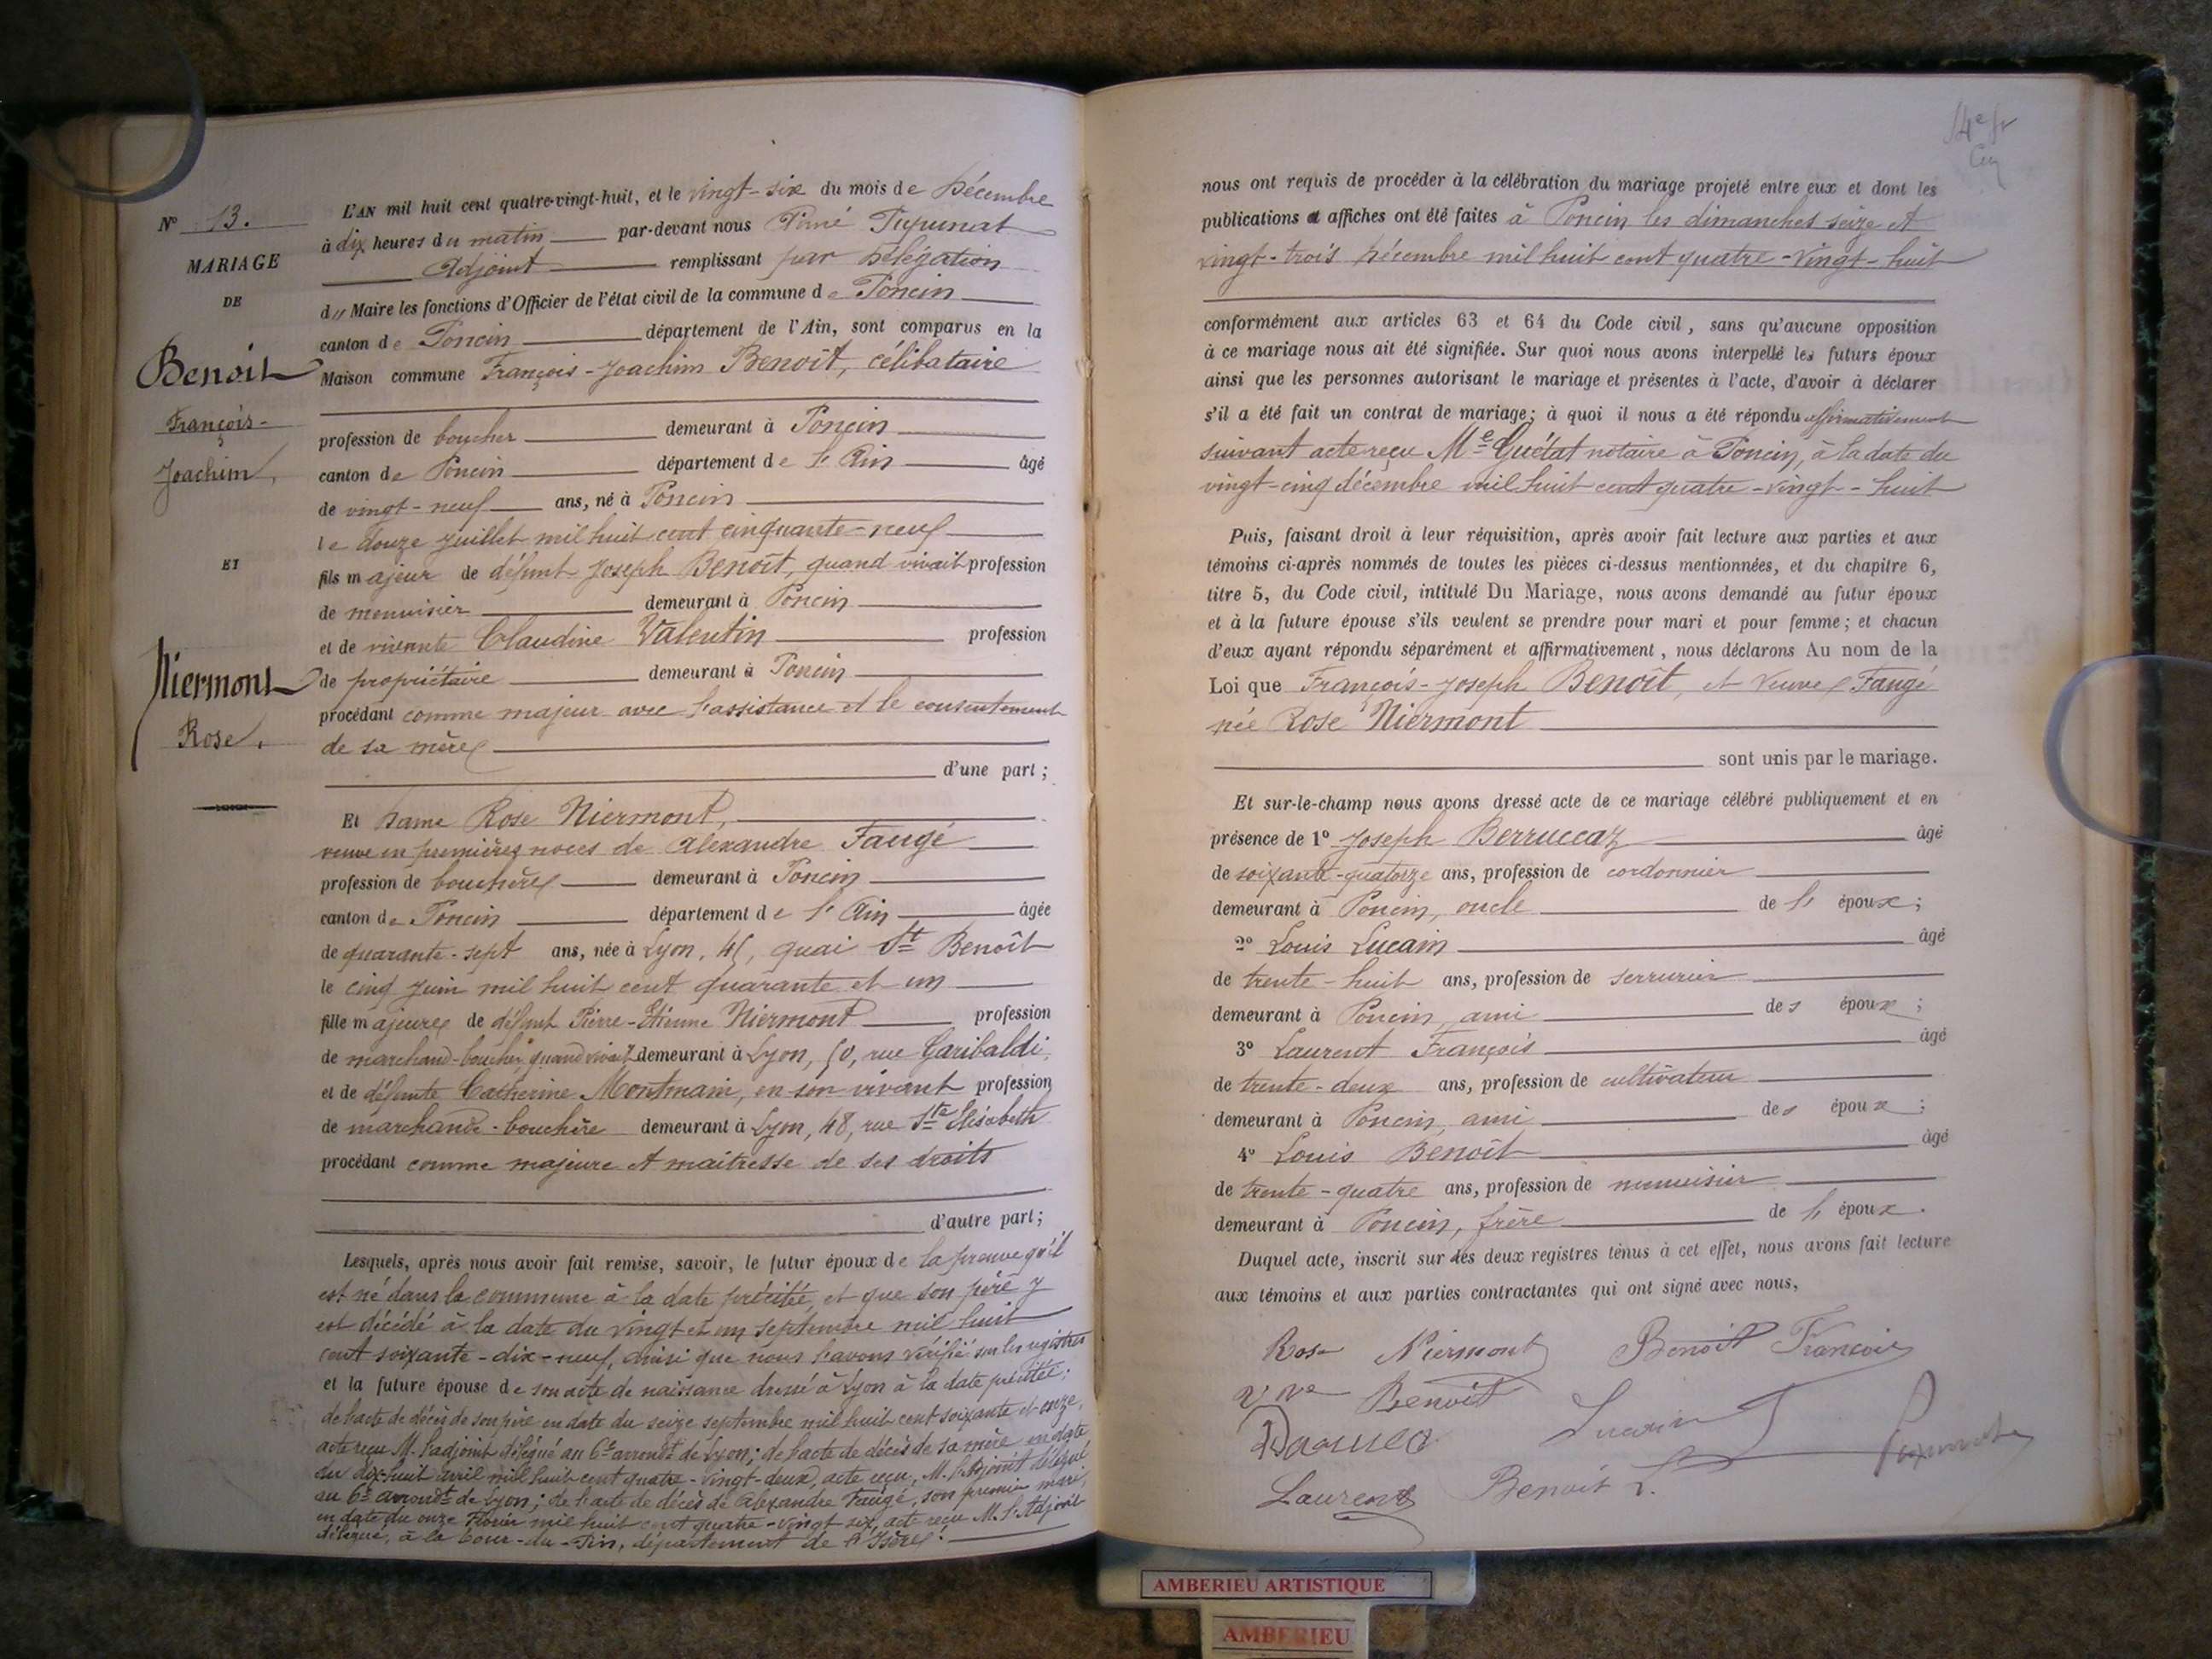 N° 13.
MARIAGE
DE
Benoit
François-
Joachim,
ET
Niermont
Rose.
L'AN mil huit cent quatre-vingt-huit, et le vingt-six du mois de Décembre
à dix heures du matin par-devant nous
Adjoint remplissant par délégation
du Maire les fonctions d'Officier de l'état civil de la commune de Poncin
canton de Poncin département de l'Ain, sont comparus en la
Maison commune François-Joachim Benoît, célibataire
profession de boucher demeurant à Poncin
canton de Poncin département de l'Ain âgé
de vingt-neuf ans, né à Poncin
le douze Juillet mil huit cent cinquante-neuf
fils majeur de défunt Joseph Benoît, quand vivait profession
de menuisier demeurant à Poncin
et de vivante Claudine Valentin profession
de propriétaire demeurant à Poncin
procédant comme majeur avec l'assistance et le consentement
de sa mère
d'une part;
Et Dame Rose Niermont,
veuve en premières noces de Alexandre Faugé
profession de bouchère demeurant à Poncin
canton de Poncin département de l'Ain âgée
de quarante-sept ans, née à Lyon, 45, quai St Benoît
le cinq Juin mil huit cent quarante et un
fille majeure de défunt Pierre-Etienne Niermont profession
de marchand-boucher, quand vivait demeurant à Lyon, 50, rue Garibaldi,
et de défunte Catherine Montmain, en son vivant profession
de marchande-bouchère demeurant à Lyon, 48, rue Ste Elisabeth
procédant comme majeure et maîtresse de ses droits
d'autre part;
Lesquels, après nous avoir fait remise, savoir, le futur époux de la preuve qu'il
est né dans la commune à la date précitée, et que son père y
est décédé à la date du vingt et un septembre mil huit
cent soixante-dix-neuf, ainsi que nous l'avons vérifié sur les registres
et la future épouse de son acte de naissance dressé à Lyon à la date précitée;
de l'acte de décès de son père en date du seize septembre mil huit cent soixante et onze,
acte reçu M. l'adjoint délégué au 6e arrondt de Lyon; de l'acte de décès de sa mère en date
du dix-huit avril mil huit cent quatre-vingt-deux, acte reçu, M. l'Adjoint délégué
au 6e arrondt de Lyon; de l'acte de décès de Alexandre Faugé, son premier mari,
en date du onze Février mil huit cent quatre-vingt-six, acte reçu M. l'Adjoint
délégué, à la Tour-du-Pin, département de l'Isère.
nous ont requis de procéder à la célébration du mariage projeté entre eux et dont les
publications et affiches ont été faites à Poncin les dimanches seize et
vingt-trois Décembre mil huit cent quatre-vingt-huit
conformément aux articles 63 et 64 du Code civil, sans qu'aucune opposition
à ce mariage nous ait été signifiée. Sur quoi nous avons interpellé les futurs époux
ainsi que les personnes autorisant le mariage et présentes à l'acte, d'avoir à déclarer
s'il a été fait un contrat de mariage; à quoi il nous a été répondu affirmativement
suivant acte reçu Me Guétat notaire à Poncin, à la date du
vingt-cinq décembre mil huit cent quatre-vingt-huit
Puis, faisant droit à leur réquisition, après avoir fait lecture aux parties et aux
témoins ci-après nommés de toutes les pièces ci-dessus mentionnées, et du chapitre 6,
titre 5, du Code civil, intitulé Du Mariage, nous avons demandé au futur époux
et à la future épouse s'ils veulent se prendre pour mari et pour femme; et chacun
d'eux ayant répondu séparément et affirmativement, nous déclarons Au nom de la
Loi que François-Joseph Benoît, et Veuve Faugé
née Rose Niermont
sont unis par le mariage.
Et sur-le-champ nous avons dressé acte de ce mariage célébré publiquement et en
présence de 1° Joseph Berruccaz âgé
de soixante-quatorze ans, profession de cordonnier
demeurant à Poncin, oncle de l'époux;
2° Louis Lucain âgé
de trente-huit ans, profession de serrurier
demeurant à Poncin, ami des époux;
3° Laurent François âgé
de trente-deux ans, profession de cultivateur
demeurant à Poncin, ami des époux;
4° Louis Benoît âgé
de trente-quatre ans, profession de menuisier
demeurant à Poncin, frère de l'époux.
Duquel acte, inscrit sur les deux registres tenus à cet effet, nous avons fait lecture
aux témoins et aux parties contractantes qui ont signé avec nous,
Rose Niermont Benoit Francois
vve Benoit
Lucain
Laurent Benoit L.
AMBERIEU ARTISTIQUE
AMBERIEU